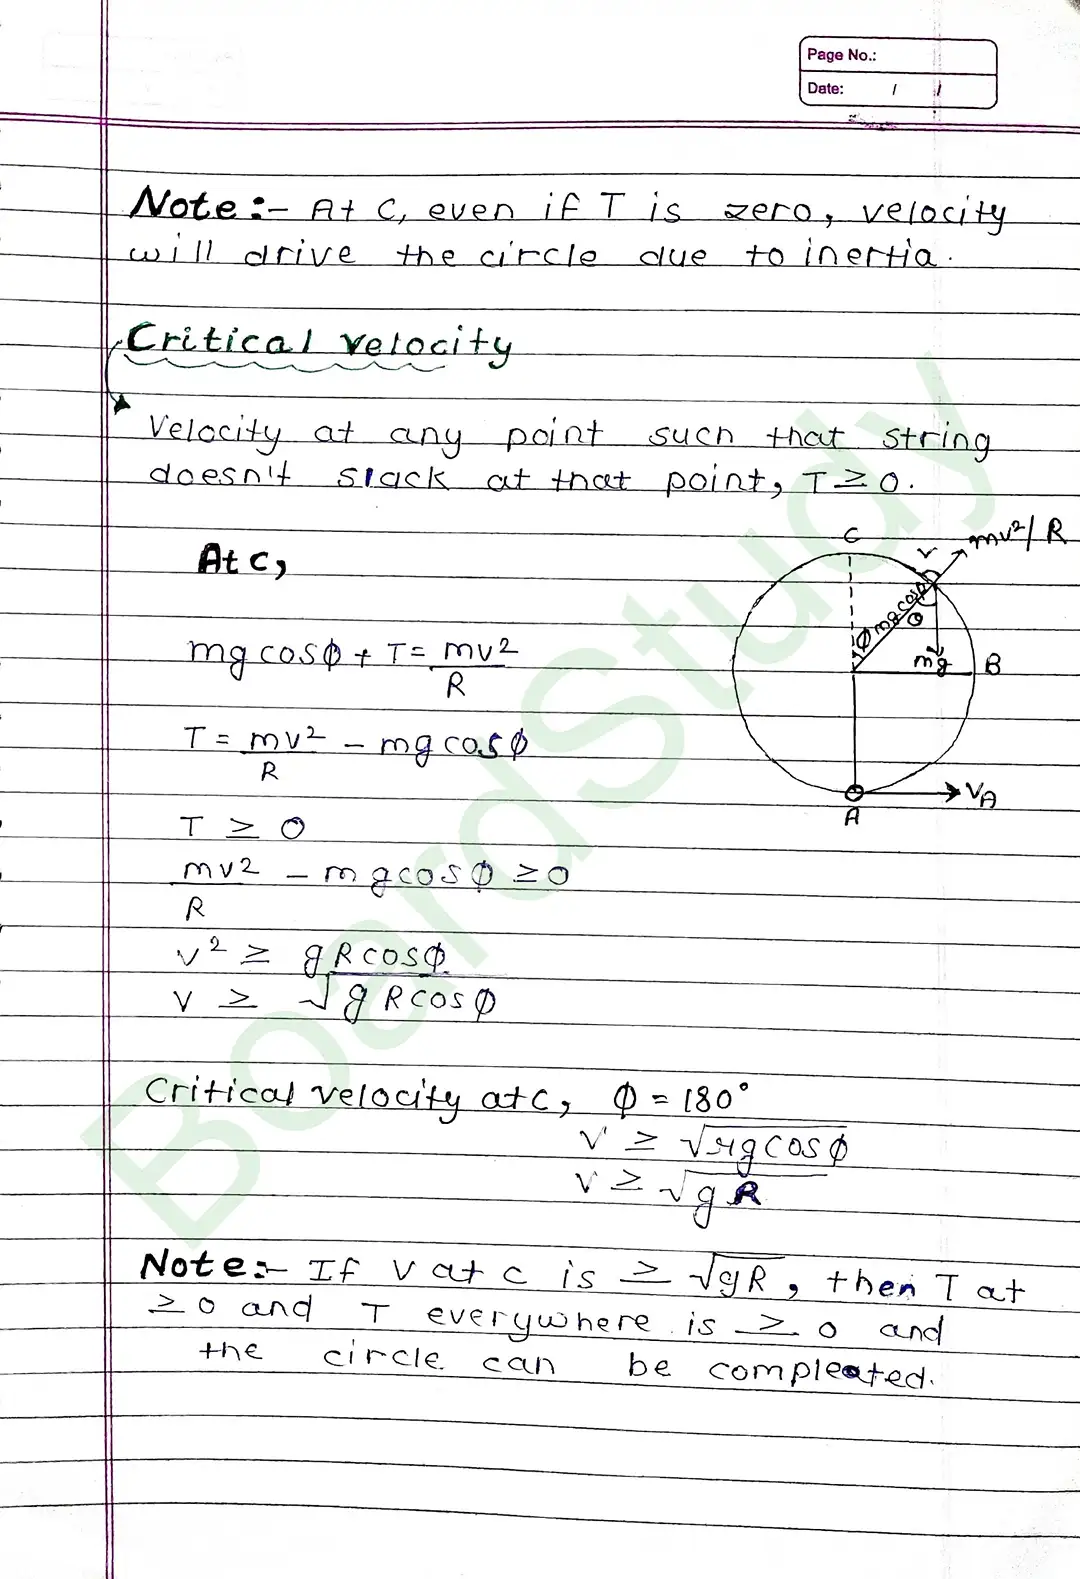 Page No.:
Date: / /
Note:- At C, even if T is zero, velocity
will drive the circle due to inertia.
Critical velocity
Velocity at any point such that string
doesn't slack at that point, T ≥ 0.
At C,
mg cosϕ + T = mv2
R
T = mv2 - mg cosϕ
R
T ≥ 0
mv2 - mg cosϕ ≥ 0
R
v² ≥ gR cosϕ
v ≥ √gR cosϕ
C
v
mv²/R
ϕ
mg cosϕ
θ
mg
B
VA
A
Critical velocity at C, ϕ = 180°
v ≥ √rg cosϕ
v ≥ √gR
Note:- If V at C is ≥ √gR, then T at
≥ 0 and T everywhere is ≥ 0 and
the circle can be compleated.
BoardStudy